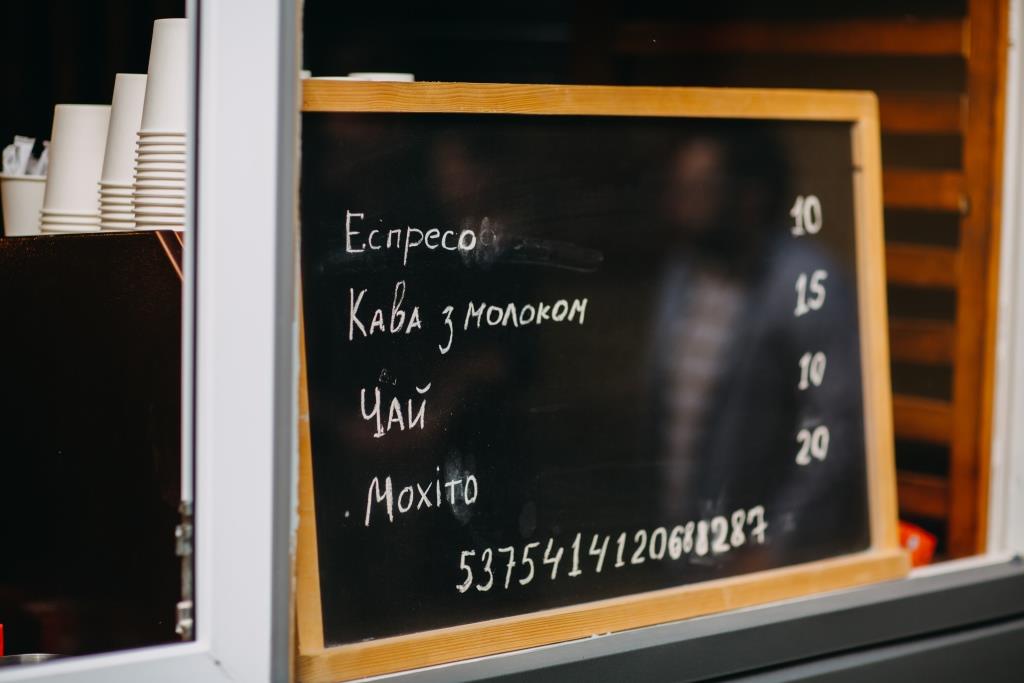 Еспресо 10
Кава з молоком 15
Чай 10
Мохіто 20
5375414120688287